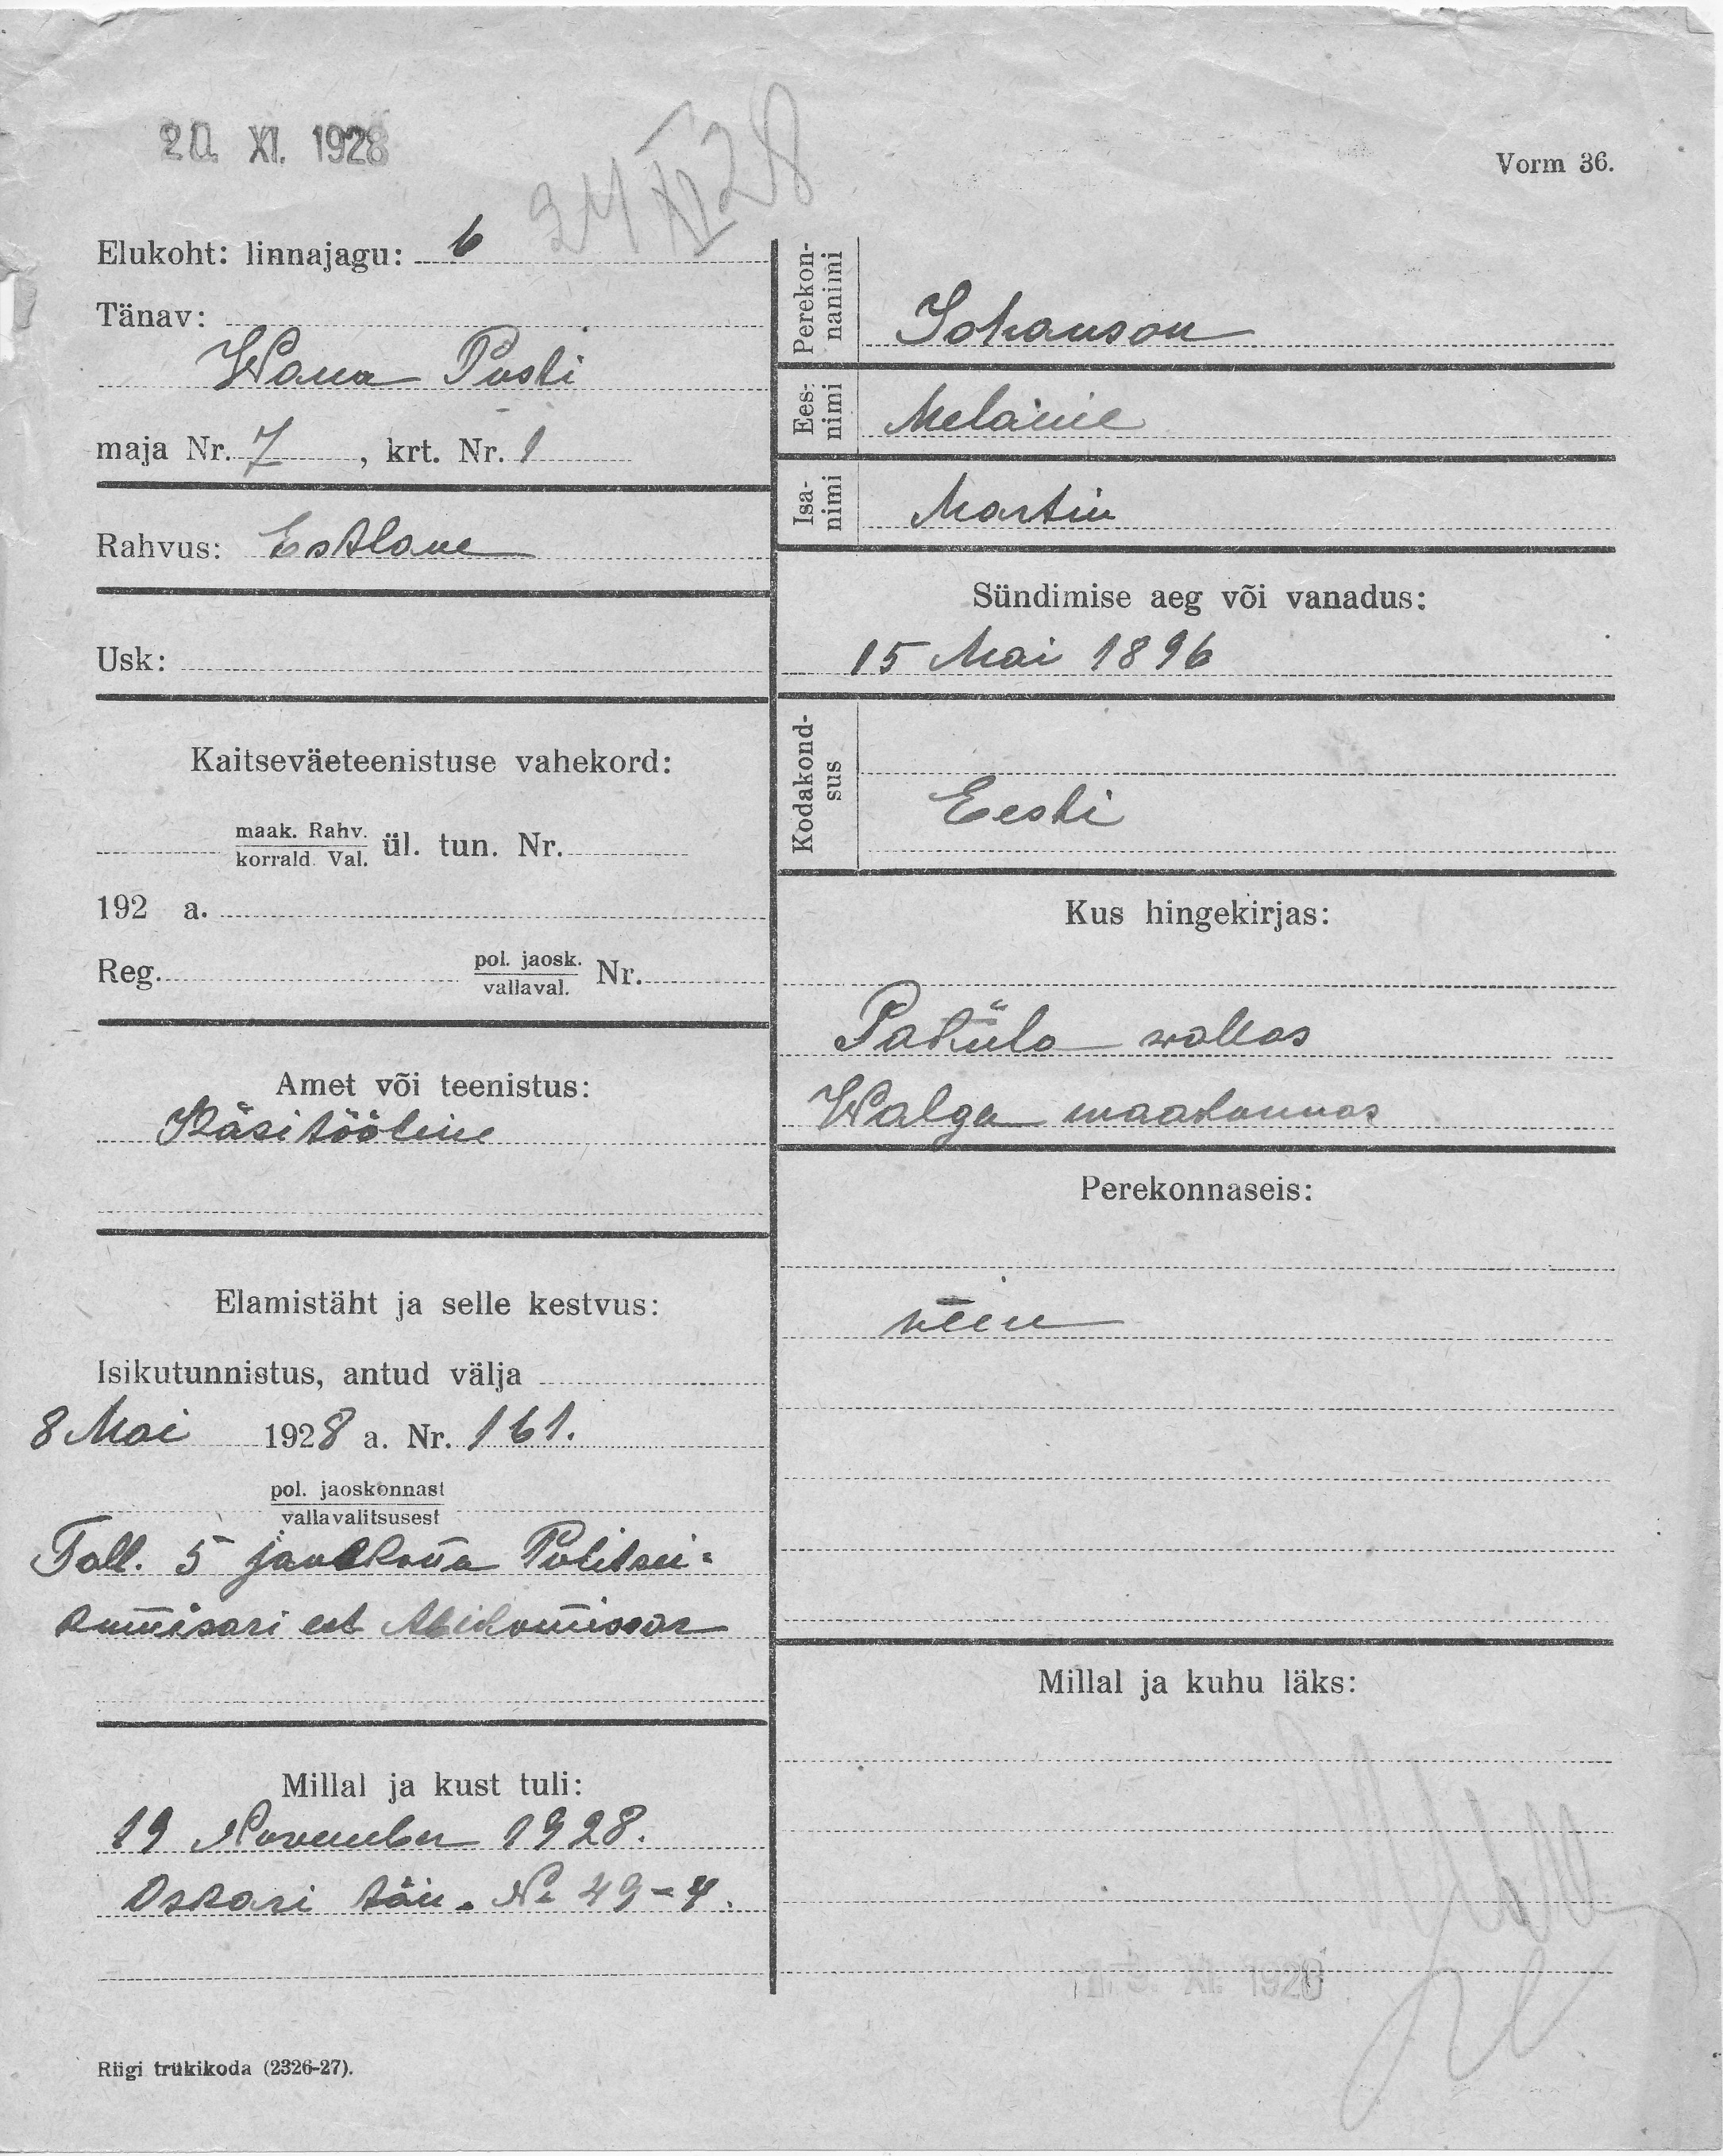 20. XI. 1928
24 XI 28
Vorm 36.
Elukoht: linnajagu: 6
Tänav:
Wana Posti
maja Nr. 7, krt. Nr. 1
Rahvus: Estlane
Usk:
Kaitseväeteenistuse vahekord:
maak. Rahv.
korrald. Val. ül. tun. Nr.
192 a.
Reg. pol. jaosk.
vallaval. Nr.
Amet või teenistus:
Käsitööline
Elamistäht ja selle kestvus:
Isikutunnistus, antud välja
8 Mai 1928 a. Nr. 161.
pol. jaoskonnast
vallavalitsusest
Tall. 5 jaoskoña Politsei-
komisari eest Abikomissar
Millal ja kust tuli:
19 November 1928.
Oskari tän. No 49-4.
Riigi trükikoda (2326-27).
Perekon-
nanimi
Johanson
Ees-
nimi
Melanie
Isa-
nimi
Martin
Sündimise aeg või vanadus:
15 Mai 1896
Kodakond-
sus
Eesti
Kus hingekirjas:
Patküla wallas
Walga maakonnas
Perekonnaseis:
neiu
Millal ja kuhu läks:
XI. 1928